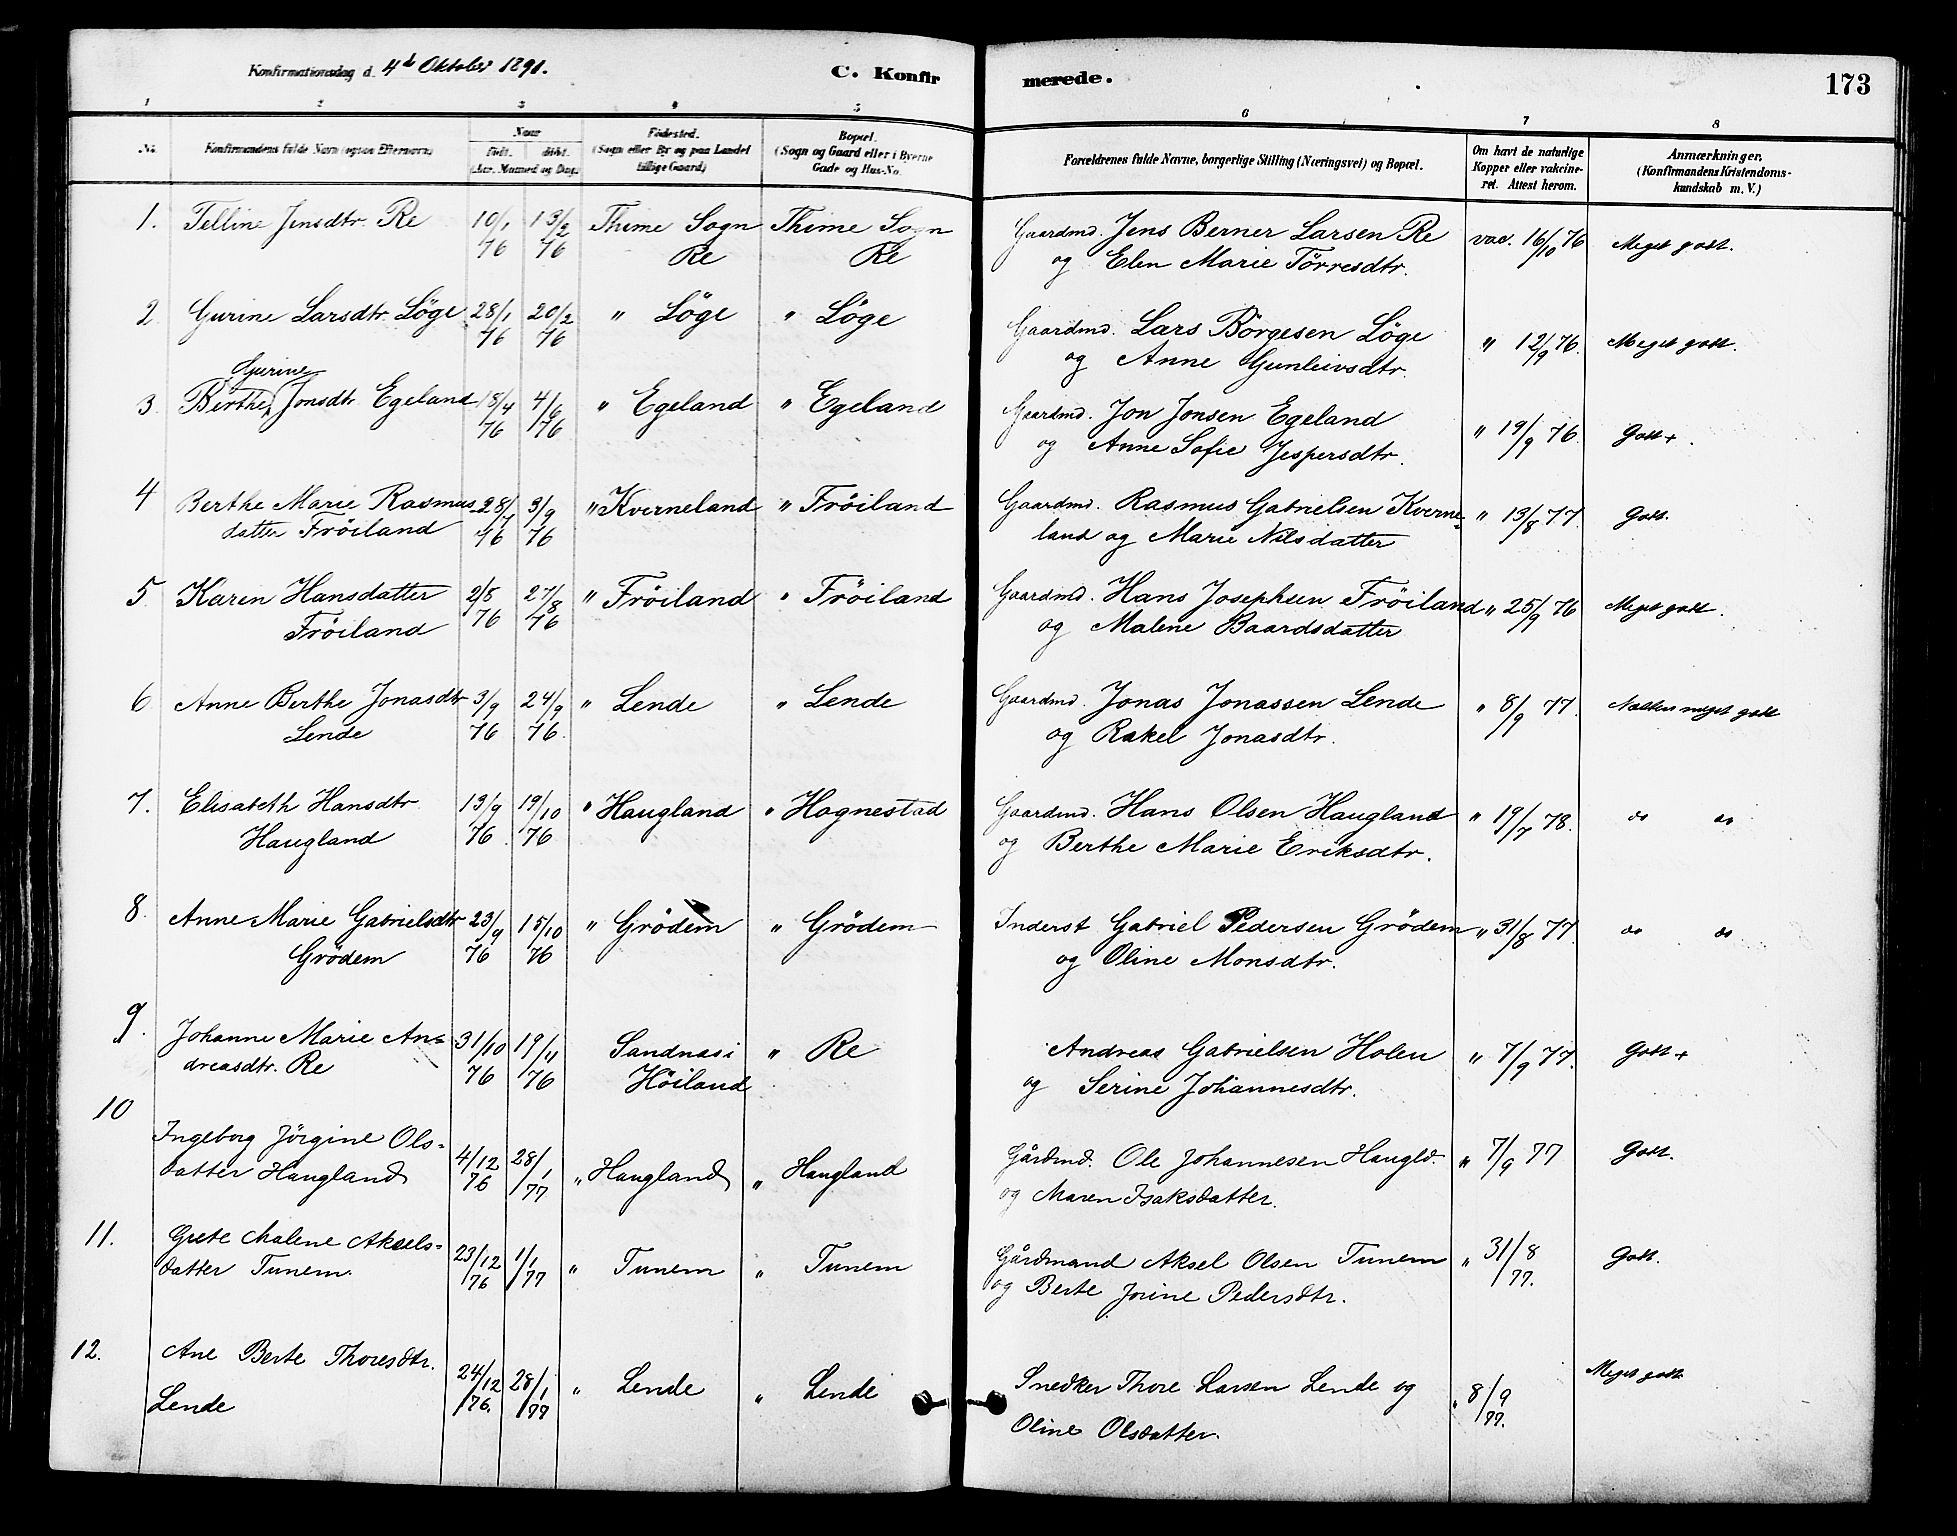 Konfirmationsdag d. 4de Oktober 1891.
C. Konfirmerede.
173
1 2 3 4 5 6 7 8
No.
Konfirmandens fulde Navn (ogsaa Efternavn)
Naar
født. døbt.
(Aar, Maaned og Dag.)
Fødested.
(Sogn eller By og paa Landet
tillige Gaard)
Bopæl.
(Sogn og Gaard eller i Byerne
Gade og Hus-No.
Forældrenes fulde Navne, borgerlige Stilling (Næringsvei) og Bopæl.
Om havt de naturlige
Kopper eller vakcine-
ret. Attest herom.
Anmærkninger.
(Konfirmandens Kristendoms-
kundskab m. V.)
1. Telline Jensdtr. Re 10/1 76 13/2 76 Thime Sogn Thime Sogn Gaardmd. Jens Berner Larsen Re vac. 16/10 76 Meget godt.
Re Re og Elen Marie Törresdtr.
2 Gurine Larsdtr. Löge 28/1 76 20/2 76 " Löge " Löge Gaardmd. Lars Börgesen Löge " 12/9 76. Meget godt.
og Anne Gunleivsdtr.
Gurine
3. Berthe Jonsdtr Egeland 18/4 76 4/6 76 " Egeland " Egeland Gaardmd. Jon Jonsen Egeland " 19/9 76. Godt +.
og Anne Sofie Jespersdtr.
4 Berthe Marie Rasmus- 28/7 76 3/9 76 " Kverneland " Fröiland Gaardmd. Rasmus Gabrielsen Kverne= " 13/8 77 Godt.
datter Fröiland land og Marie Nilsdatter
5. Karen Hansdatter 2/8 76 27/8 76 " Fröiland " Fröiland Gaardmd. Hans Josephsen Fröiland " 25/9 76 Meget godt.
Fröiland og Malene Baardsdatter
6 Anne Berthe Jonasdtr 3/9 76 24/9 76. " Lende " Lende Gaardmd. Jonas Jonassen Lende " 8/9 77. Næsten meget godt
Lende og Rakel Jonasdtr.
7. Elisabeth Hansdtr 13/9 76 19/10 76 " Haugland " Hognestad Gaardmd. Hans Olsen Haugland " 19/7 78. do do
Haugland og Berthe Marie Eriksdtr.
8. Anne Marie Gabrielsdtr 23/9 76 15/10 76 " Grödem " Grödem Inderst Gabriel Pedersen Grödem " 31/8 77. do do
Grödem og Oline Monsdtr.
9. Johanne Marie An= 31/10 76 19/11 76 Sandnas i " Re Andreas Gabrielsen Holen " 7/9 77. Godt +
dreasdtr. Re Höiland og Serine Johannesdtr.
10 Ingeborg Jörgine Ols= 4/12 76 28/1 77 " Haugland " Haugland Gårdmd. Ole Johannesen Haugld. " 7/9 77 Godt.
datter Haugland og Maren Isaksdatter.
11. Grete Malene Aksels= 23/12 76 1/1 77 " Tunem " Tunem Gårdmand Aksel Olsen Tunem " 31/8 77. Godt.
datter Tunem. og Berte Jorine Pedersdtr.
12. Ane Berte Thoresdtr. 24/12 76. 28/1 77 " Lende " Lende Snedker Thore Larsen Lende og " 8/9 77. Meget godt.
Lende Oline Olsdatter.